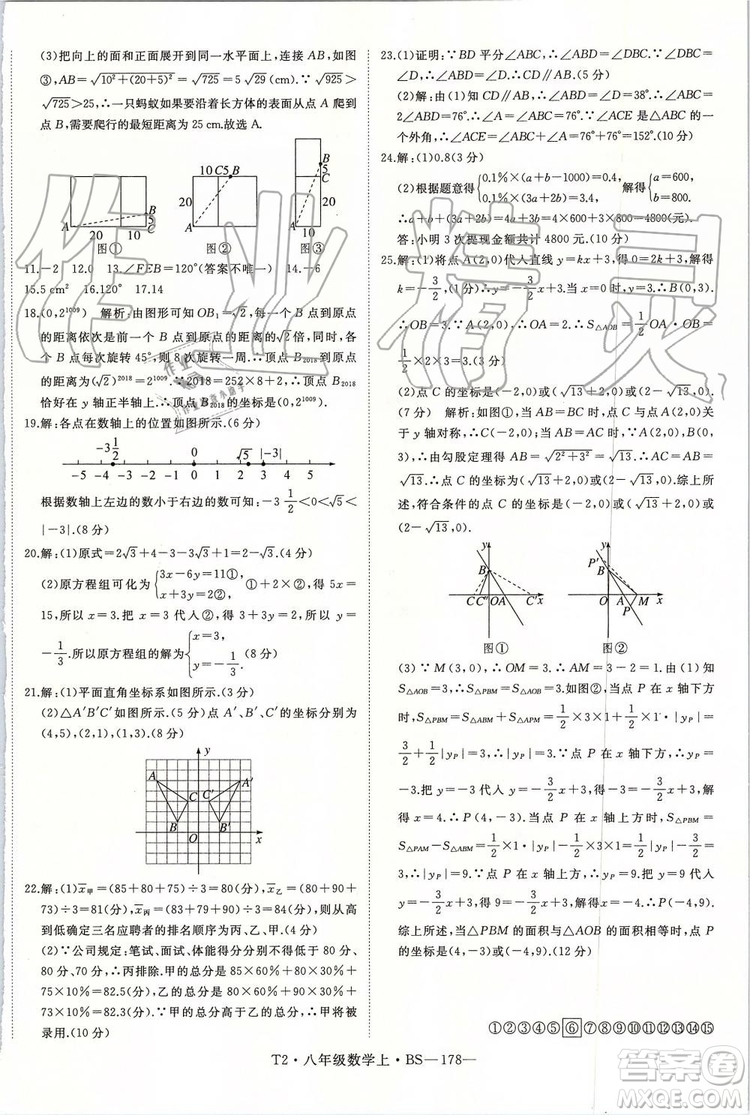 (3)把向上的面和正面展开到同一水平面上,连接 AB,如图
③,AB=√10²+(20+5)²=√725=5√29(cm).∵√925>
√725>25,∴一只蚂蚁如果要沿着长方体的表面从点 A 爬到
点 B,需要爬行的最短距离为 25 cm.故选 A.
B
5
10
A
20
10
图①
10
C
5
B
20
20
A
图②
B
5
C
20
A
10
图③
11.-2 12.0 13.∠FEB=120°(答案不唯一) 14.-6
15.5 cm² 16.120° 17.14
18.(0,2¹⁰⁰⁹) 解析:由图形可知 OB₁=√2,每一个点到原点
的距离依次是前一个点到原点的距离的√2倍,同时,各个
点每次旋转 45°,则 8 次旋转一周.∴顶点 B₂₀₁₈到原点的
距离为(√2)²⁰¹⁸=2¹⁰⁰⁹.∵2018=252×8+2,∴顶点 B₂₀₁₈
恰好在 y 轴正半轴上.∴顶点 B₂₀₁₈的坐标是(0,2¹⁰⁰⁹)
19.解:各点在数轴上的位置如图所示.
-3 1/2
0
√5
|-3|
-5 -4 -3 -2 -1 0 1 2 3 4 5
根据数轴上左边的数小于右边的数可知:-3 1/2<0<√5<
|-3|.(8 分)
20.解:(1)原式=2√3+4-3-3√3=1-√3.(4 分)
(2)原方程组可化为{3x-6y=11①, 2x+3y=5②. ①+②×2,得 5x=
15,所以 x=3.把 x=3 代入②,得 2×3+3y=5,所以 y=
-1/3.所以原方程组的解为{x=3, y=-1/3.(8 分)
21.解:(1)平面直角坐标系如图所示.(2 分)
(2)△A′B′C′如图所示.(5 分)点 A′、B′、C′的坐标分别为
(4,5),(2,1),(1,3).(8 分)
y
A
A′
C
C′
B
B′
O
x
22.解:(1)x̄甲=(85+80+75)÷3=80(分),x̄乙=(80+90+
73)÷3=81(分),x̄丙=(83+79+90)÷3=84(分),则从高
到低确定三名应聘者的排名顺序为丙,乙,甲.(4 分)
(2)∵公司规定:笔试、面试、体能得分分别不得低于 80 分、
80 分、70 分,∴丙排除.甲的总分是 85×60%+80×30%+
75×10%=82.5(分),乙的总分是 80×60%+90×30%+
73×10%=82.3(分),甲的总分高于乙的总分,∴甲将被
录用.(10 分)
23.(1)证明:∵BD 平分∠ABC,∴∠ABD=∠DBC.∵∠ABD=
∠D,∴∠D=∠DBC,∴CD∥AB.(5 分)
(2)解:由(1)知 CD∥AB,∴∠ABD=∠D=38°.∴∠ABC=
2∠ABD=76°.∴∠ACB=∠ABC=76°.∵∠ACE 是△ABC 的一
个外角,∴∠ACE=∠A+∠ABC=76°+76°=152°.(10 分)
24.解:(1)0.8(3 分)
(2)根据题意得{0.1%×(a+b-1000)=0.4, 0.1%×(3a+2b)=3.4, 解得{a=600, b=800.
∴a+b+(3a+2b)=4a+3b=4×600+3×800=4800(元).
答:小明 3 次提现金额共计 4800 元.(10 分)
25.解:(1)将点 A(2,0)代入直线 y=kx+3,得 0=2k+3,解得
k=-3/2,(1 分)∴y=-3/2x+3.当 x=0 时,y=3.∴B(0,3).
∴OB=3.∵A(2,0),∴OA=2.∴S△AOB=1/2 OA·OB=
1/2×2×3=3.(2 分)
(2)点 C 的坐标是(-2,0)或(2+√13,0)或(2-√13,0).
(7 分) 解析:如图①,当 AB=BC 时,点 C 与点 A(2,0)关
于 y 轴对称,故 C(-2,0)符合题意;当 AB=AC 时,由 A(2,
0),B(0,3),由勾股定理得 AB=√2²+3²=√13,∴AC=
√13.∴C 的坐标是(√13+2,0)或(2-√13,0).综上所
述,符合条件的点 C 的坐标是(-2,0)或(√13+2,0)或
(2-√13,0).
y
B
C C″ O A C′ x
图①
y
P′
B
O A M x
P
图②
(3)∵M(3,0),∴OM=3.∴AM=3-2=1.由(1)知
S△AOB=3,∴S△PBM=S△AOB=3.①如图②,当点 P 在 x 轴下方时,
S△PBM=S△PAM+S△ABM=1/2×3×1+1/2×1·|yP|=
3/2+1/2|yP|=3,∴|yP|=3.∵点 P 在 x 轴下方,∴yP=
-3.把 y=-3 代入 y=-3/2x+3,得-3=-3/2x+3,解得 x=
4.∴P(4,-3).②当点 P 在 x 轴上方时,S△PBM=
S△PAM-S△ABM=1/2×1×|yP|-1/2×1×3=3,∴|yP|=9.∵点
P 在 x 轴上方,∴yP=9.把 y=9 代入 y=-3/2x+3,得 9=
-3/2x+3,解得 x=-4.∴P(-4,9).
综上所述,当△PBM 的面积与△AOB 的面积相等时,点 P
的坐标是(4,-3)或(-4,9).(12 分)
①②③④⑤⑥⑦⑧⑨⑩⑪⑫⑬⑭⑮
T2·八年级数学上·BS—178—
作业精灵
答案圈
MXQE.COM